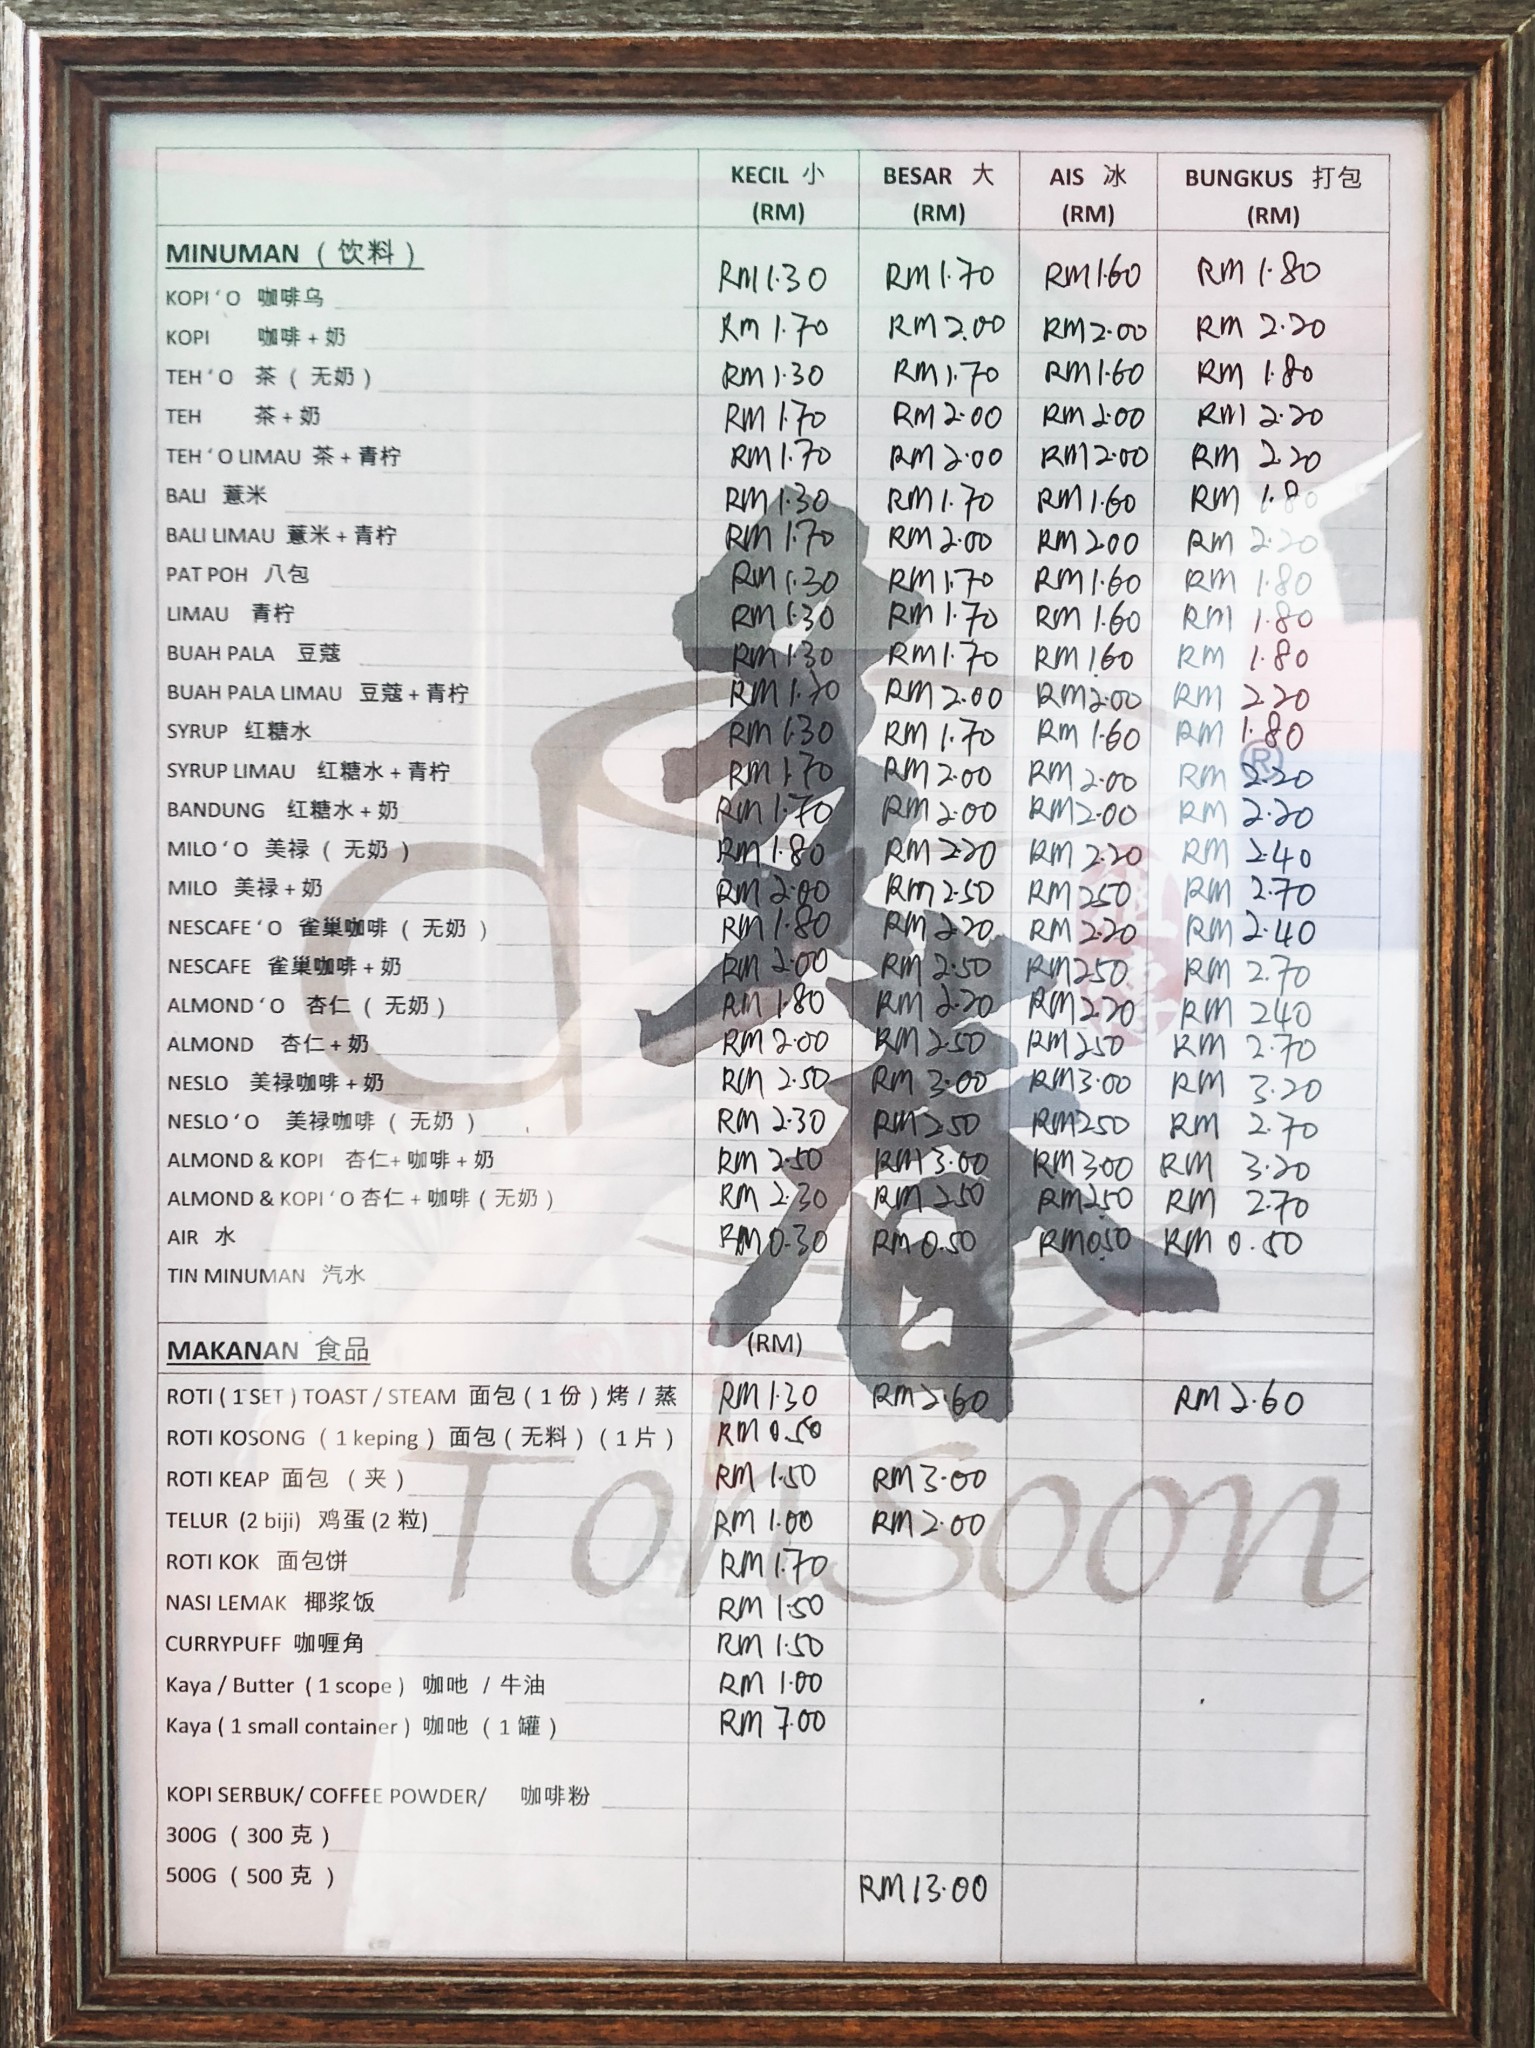 KECIL 小 BESAR 大 AIS 冰 BUNGKUS 打包
(RM) (RM) (RM) (RM)
MINUMAN ( 饮料 )
KOPI ‘ O 咖啡乌 RM 1.30 RM 1.70 RM 1.60 RM 1.80
KOPI 咖啡 + 奶 RM 1.70 RM 2.00 RM 2.00 RM 2.20
TEH ‘ O 茶 ( 无奶 ) RM 1.30 RM 1.70 RM 1.60 RM 1.80
TEH 茶 + 奶 RM 1.70 RM 2.00 RM 2.00 RM 2.20
TEH ‘ O LIMAU 茶 + 青柠 RM 1.70 RM 2.00 RM 2.00 RM 2.20
BALI 薏米 RM 1.30 RM 1.70 RM 1.60 RM 1.80
BALI LIMAU 薏米 + 青柠 RM 1.70 RM 2.00 RM 200 RM 2.20
PAT POH 八包 RM 1.30 RM 1.70 RM 1.60 RM 1.80
LIMAU 青柠 RM 1.30 RM 1.70 RM 1.60 RM 1.80
BUAH PALA 豆蔻 RM 1.30 RM 1.70 RM 1.60 RM 1.80
BUAH PALA LIMAU 豆蔻 + 青柠 RM 1.70 RM 2.00 RM 2.00 RM 2.20
SYRUP 红糖水 RM 1.30 RM 1.70 RM 1.60 RM 1.80
SYRUP LIMAU 红糖水 + 青柠 RM 1.70 RM 2.00 RM 2.00 RM 2.20
BANDUNG 红糖水 + 奶 RM 1.70 RM 2.00 RM 2.00 RM 2.20
MILO ‘ O 美禄 ( 无奶 ) RM 1.80 RM 2.20 RM 2.20 RM 2.40
MILO 美禄 + 奶 RM 2.00 RM 2.50 RM 250 RM 2.70
NESCAFE ‘ O 雀巢咖啡 ( 无奶 ) RM 1.80 RM 2.20 RM 2.20 RM 2.40
NESCAFE 雀巢咖啡 + 奶 RM 2.00 RM 2.50 RM 250 RM 2.70
ALMOND ‘ O 杏仁 ( 无奶 ) RM 1.80 RM 2.20 RM 2.20 RM 240
ALMOND 杏仁 + 奶 RM 2.00 RM 2.50 RM 250 RM 2.70
NESLO 美禄咖啡 + 奶 RM 2.50 RM 3.00 RM 3.00 RM 3.20
NESLO ‘ O 美禄咖啡 ( 无奶 ) RM 2.30 RM 250 RM 250 RM 2.70
ALMOND & KOPI 杏仁+ 咖啡 + 奶 RM 2.50 RM 3.00 RM 3.00 RM 3.20
ALMOND & KOPI ‘ O 杏仁 + 咖啡 ( 无奶 ) RM 2.30 RM 250 RM 250 RM 2.70
AIR 水 RM 0.30 RM 0.50 RM 0.50 RM 0.50
TIN MINUMAN 汽水
MAKANAN 食品 (RM)
ROTI ( 1 SET ) TOAST / STEAM 面包 ( 1 份 ) 烤 / 蒸 RM 1.30 RM 2.60 RM 2.60
ROTI KOSONG ( 1 keping ) 面包 ( 无料 ) ( 1 片 ) RM 0.50
ROTI KEAP 面包 ( 夹 ) RM 1.50 RM 3.00
TELUR (2 biji) 鸡蛋 (2 粒) RM 1.00 RM 2.00
ROTI KOK 面包饼 RM 1.70
NASI LEMAK 椰浆饭 RM 1.50
CURRYPUFF 咖喱角 RM 1.50
Kaya / Butter ( 1 scope ) 咖吔 / 牛油 RM 1.00
Kaya ( 1 small container ) 咖吔 ( 1 罐 ) RM 7.00
KOPI SERBUK/ COFFEE POWDER/ 咖啡粉
300G ( 300 克 )
500G ( 500 克 ) RM 13.00
Toh Soon
®